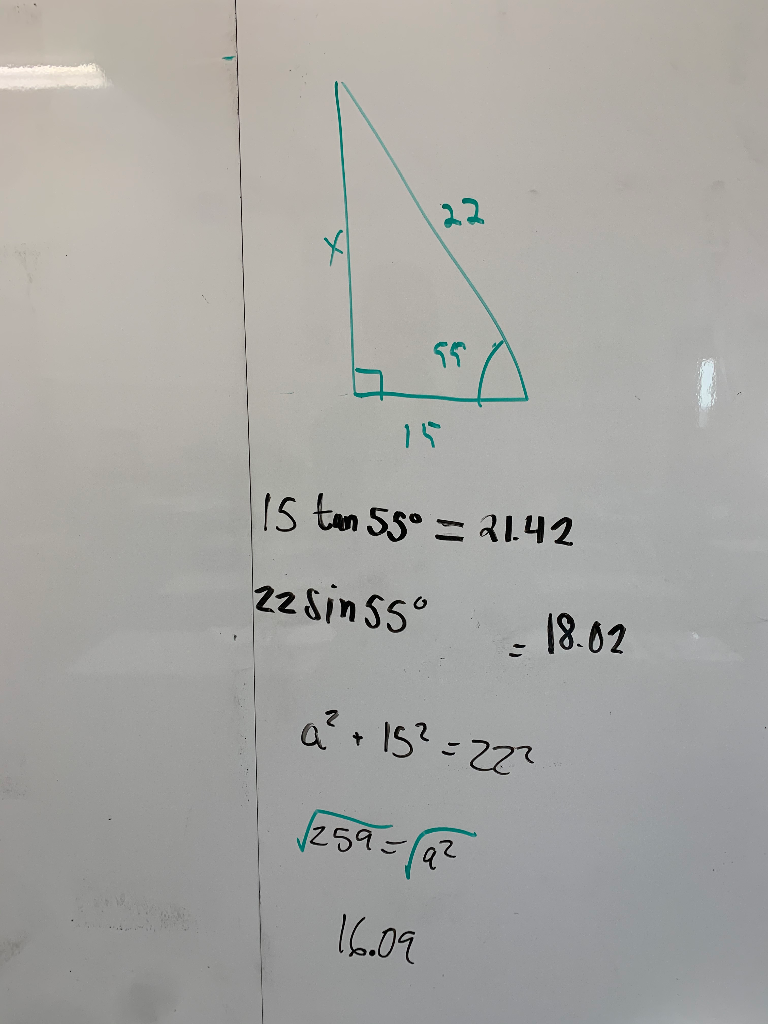 22
x
55
15
15 tan 55° = 21.42
22 sin 55° = 18.02
a² + 15² = 22²
√259 = √a²
16.09